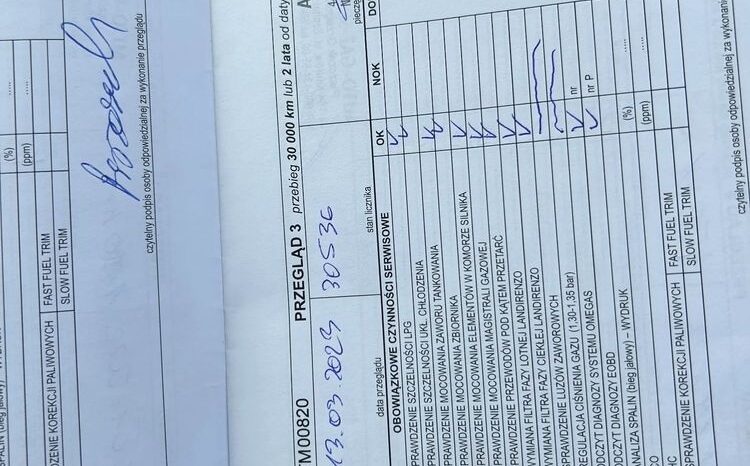 SPALIN (bieg jałowy) – WYDRUK
(%)
.....
(ppm)
.....
DZENIE KOREKCJI PALIWOWYCH
FAST FUEL TRIM
SLOW FUEL TRIM
czytelny podpis osoby odpowiedzialnej za wykonanie przeglądu
TM00820
PRZEGLĄD 3 przebieg 30 000 km lub 2 lata od daty
13.03.2023
30536
data przeglądu
stan licznika
OBOWIĄZKOWE CZYNNOŚCI SERWISOWE
OK
NOK
DO
PRAWDZENIE SZCZELNOŚCI LPG
PRAWDZENIE SZCZELNOŚCI UKŁ. CHŁODZENIA
PRAWDZENIE MOCOWANIA ZAWORU TANKOWANIA
PRAWDZENIE MOCOWANIA ZBIORNIKA
PRAWDZENIE MOCOWANIA ELEMENTÓW W KOMORZE SILNIKA
PRAWDZENIE MOCOWANIA MAGISTRALI GAZOWEJ
PRAWDZENIE PRZEWODÓW POD KĄTEM PRZETARĆ
WYMIANA FILTRA FAZY LOTNEJ LANDIRENZO
WYMIANA FILTRA FAZY CIEKŁEJ LANDIRENZO
PRAWDZENIE LUZÓW ZAWOROWYCH
REGULACJA CIŚNIENIA GAZU (1.30-1.35 bar)
nr
ODCZYT DIAGNOZY SYSTEMU OMEGAS
nr P
ODCZYT DIAGNOZY EOBD
NALIZA SPALIN (bieg jałowy) – WYDRUK
(%)
.....
(ppm)
.....
HC
PRAWDZENIE KOREKCJI PALIWOWYCH
FAST FUEL TRIM
SLOW FUEL TRIM
czytelny podpis osoby odpowiedzialnej za wykonanie